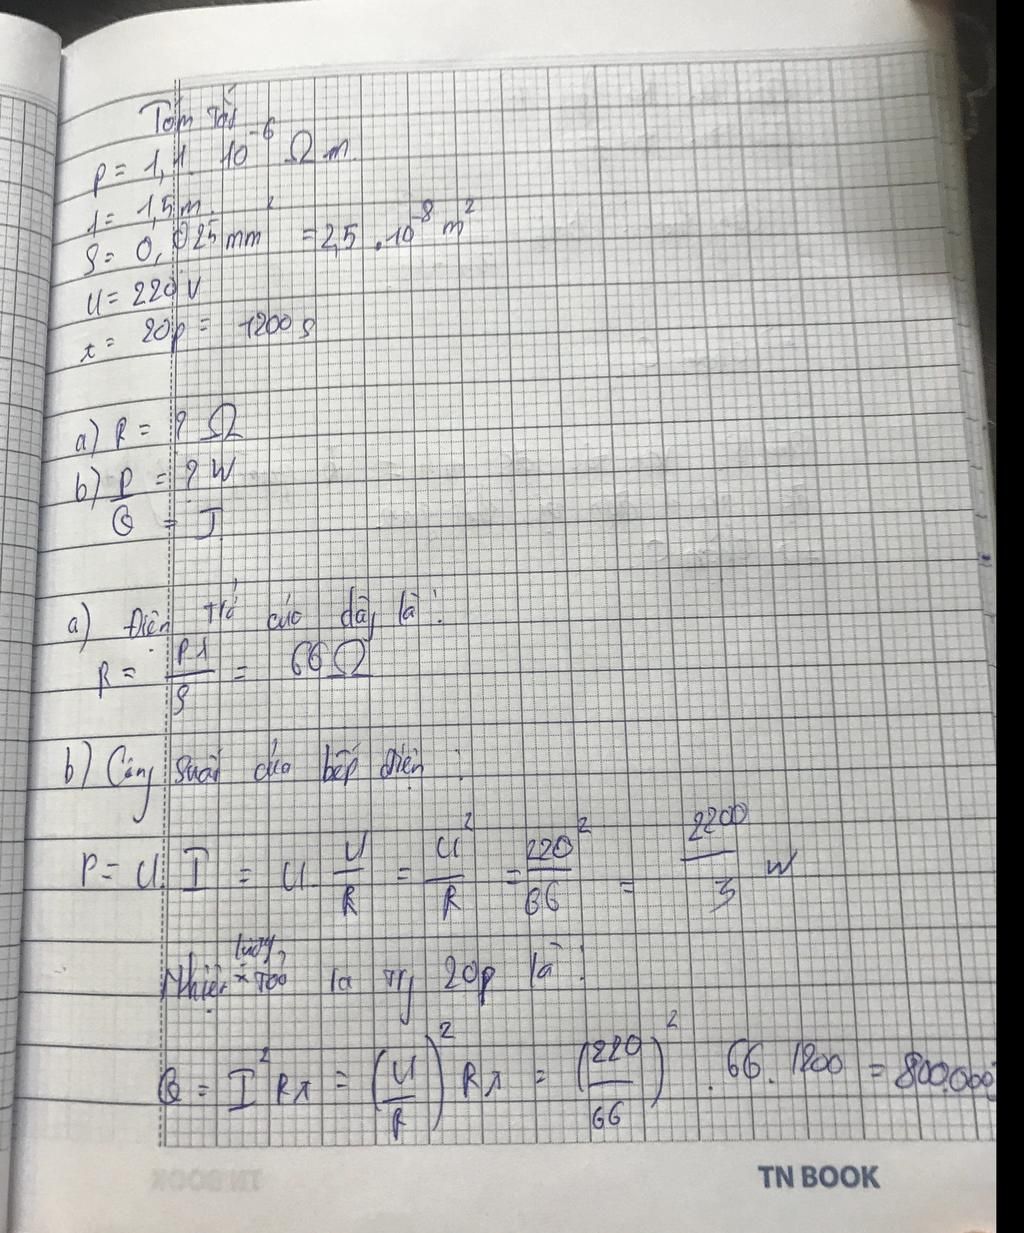 Tóm tắt
ρ = 1,1 . 10^-6 Ω m
l = 1,5 m
S = 0,025 mm^2 = 2,5 . 10^-8 m^2
U = 220 V
t = 20p = 1200 s
a) R = ? Ω
b) P = ? W
Q = J
a) Điện trở của dây là :
R = ρl/S = 66 Ω
b) Công suất của bếp điện :
P = U.I = U. U/R = U^2/R = 220^2/66 = 2200/3 W
Nhiệt lượng toả ra trg 20p là :
Q = I^2 Rt = (U/R)^2 Rt = (220/66)^2 . 66 . 1200 = 800.000
TN BOOK